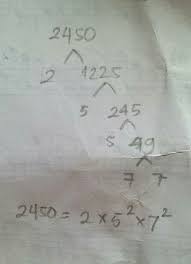 2450
2 1225
5 245
5 49
7 7
2450 = 2 × 5² × 7²